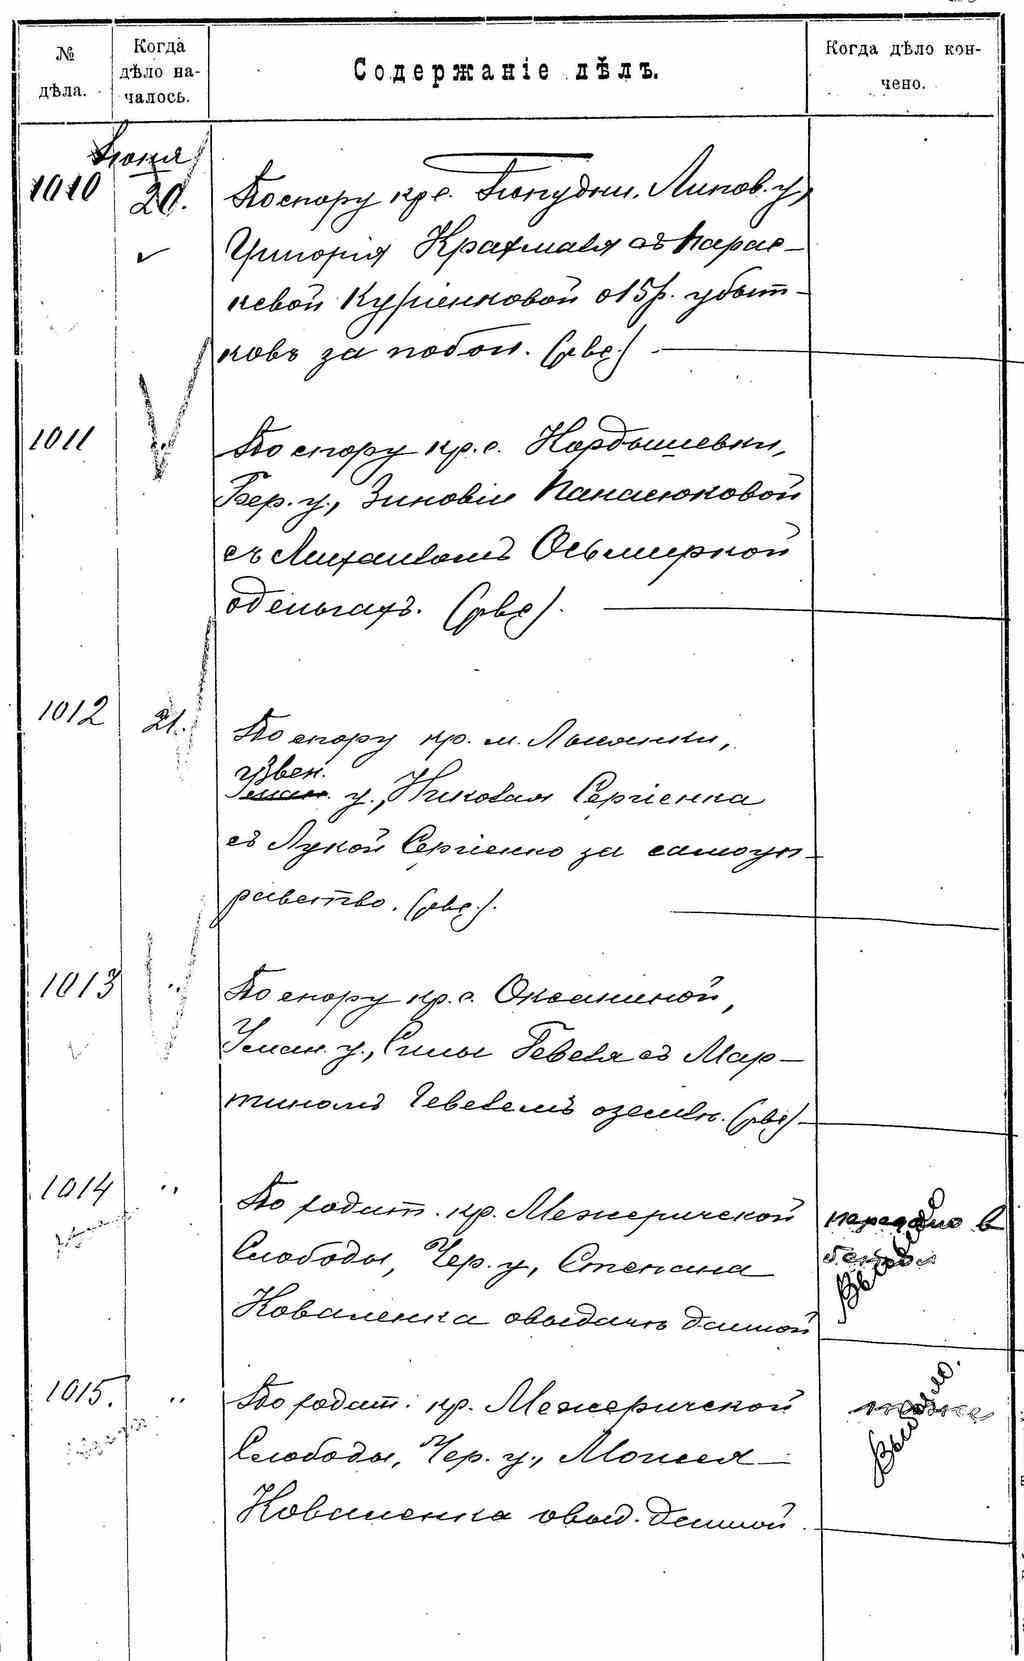 № дѣла.
Когда дѣло началось.
Содержаніе дѣлъ.
Когда дѣло кончено.
Іюня
1010
20.
По спору кр. с. Липов. у.,
Григорія съ Парас-
кевой Куріенковой о 15 р. убыт-
ковъ за побои.
1011
По спору кр. с. Нордышевки,
Бер. у., Зиновіи Панасюковой
съ Михаиломъ Осьмиркой
о деньгахъ.
1012
21.
По спору кр. м. Лысянки,
Звен.
Уман. у., Николая Сергіенка
съ Лукой Сергіенко за самоуп-
равство.
1013
"
По спору кр. с. Оксаниной,
Уман. у., Силы Гевеля съ Мар-
тиномъ Гевелемъ о землѣ.
1014
"
По ходат. кр. Межиричской
Слободы, Чер. у., Степана
Коваленка о выдачѣ данной
передано в
Выбыло
1015.
"
По ходат. кр. Межиричской
Слободы, Чер. у., Моисея
Коваленка о выд. данной
тоже
Выбыло.